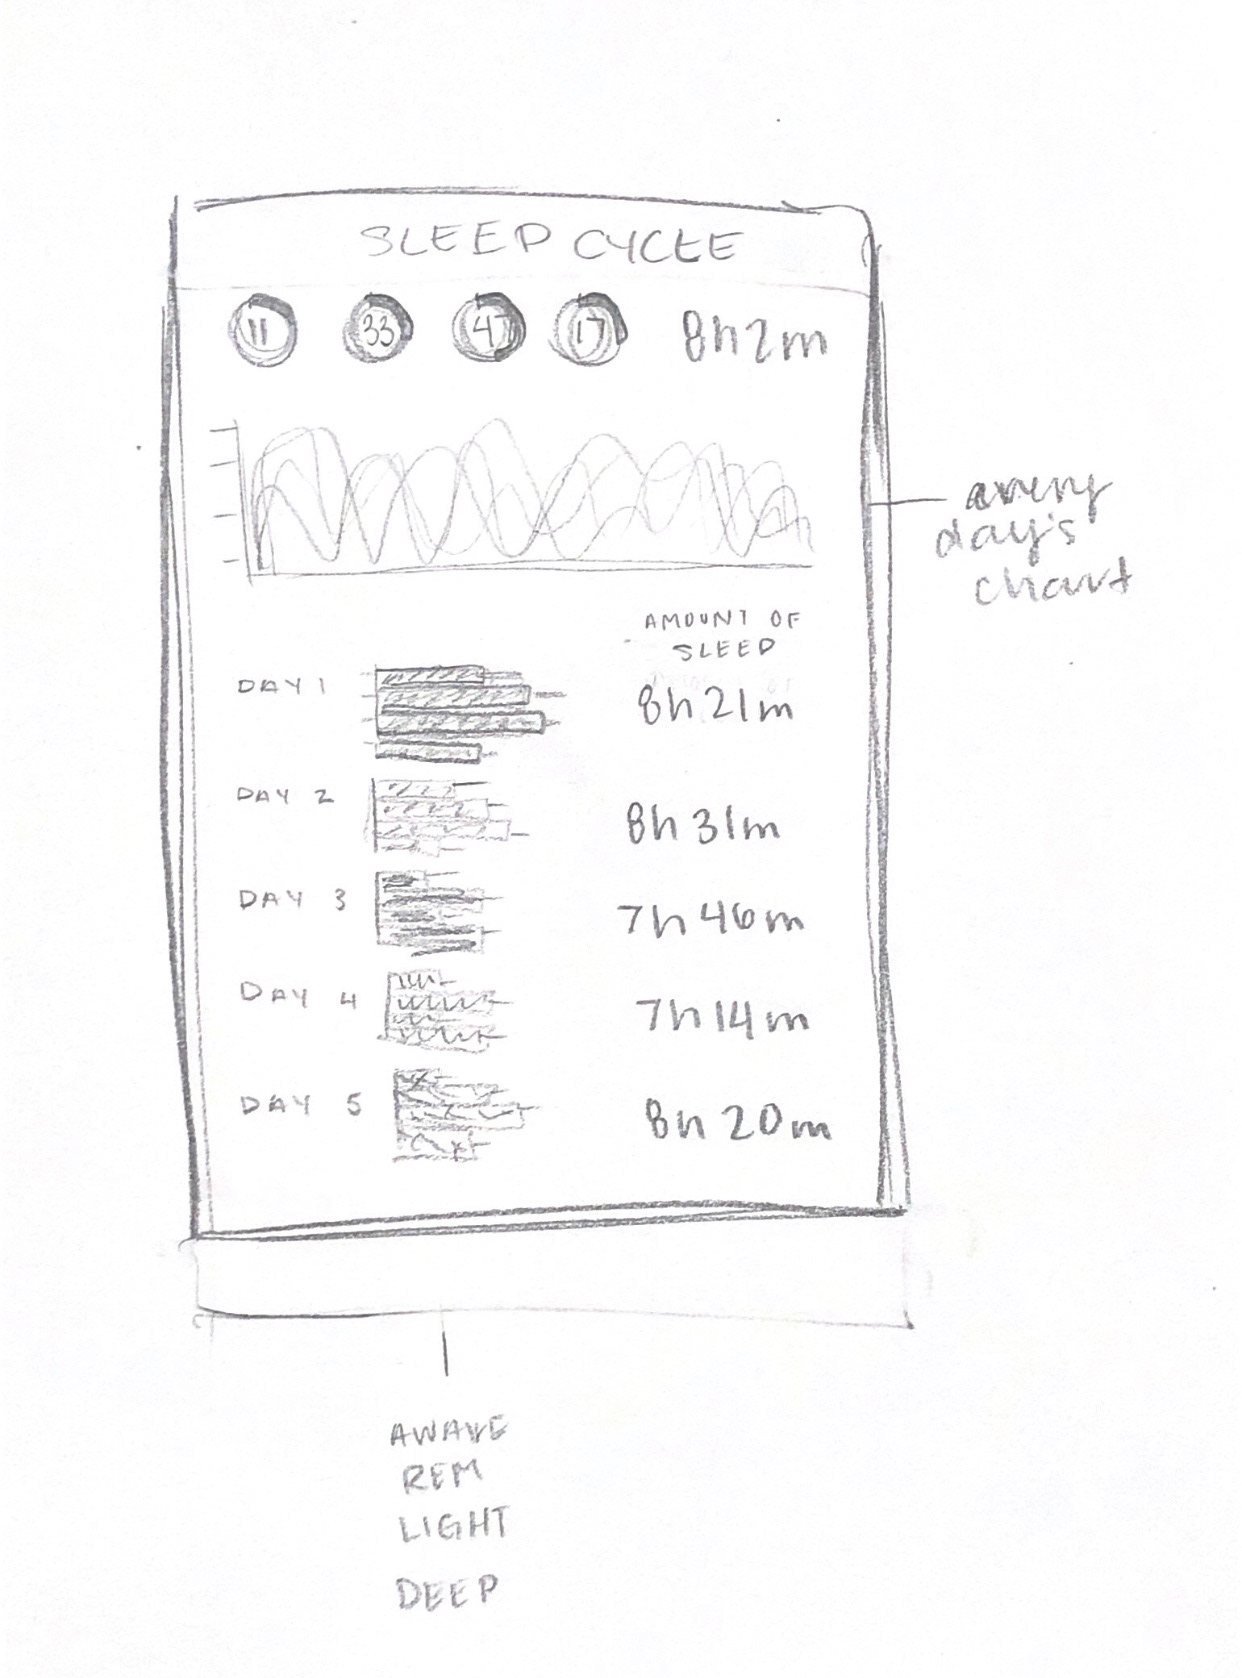 SLEEP CYCLE
11 33 47 17 8h2m
every
day's
chart
AMOUNT OF
SLEEP
DAY 1 8h 21m
DAY 2 8h 31m
DAY 3 7h 46m
DAY 4 7h 14m
DAY 5 8h 20m
AWAKE
REM
LIGHT
DEEP